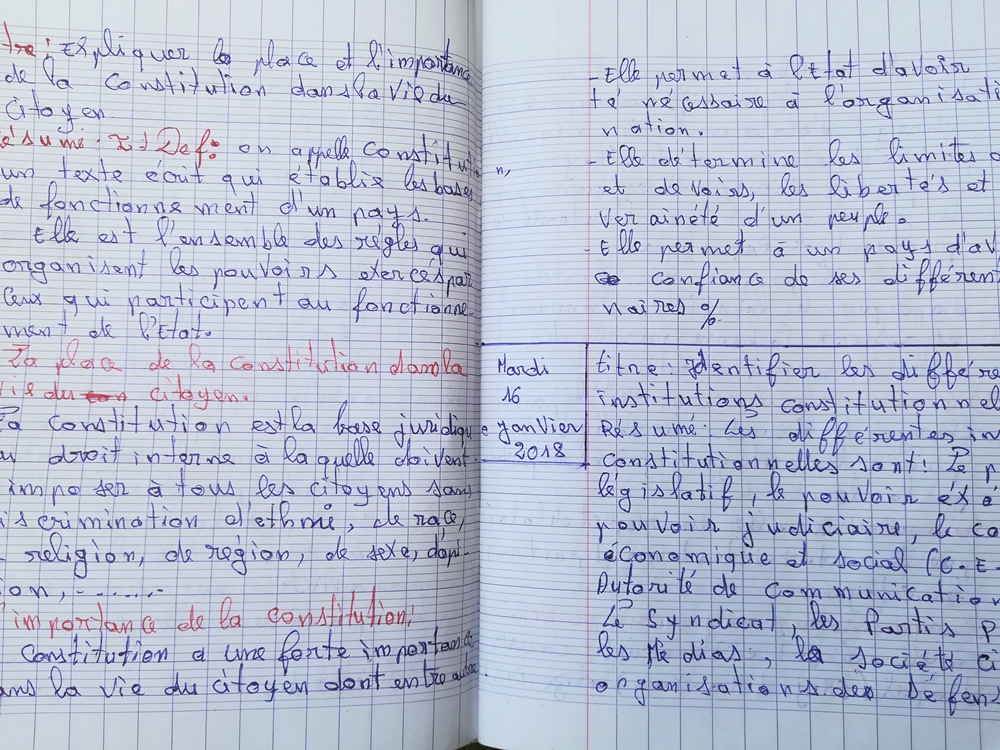 tre : Expliquer la place et l'importance
de la constitution dans la vie du
citoyen
ésumé : I-) Def : on appelle constituti
un texte écrit qui établie les bases
de fonctionnement d'un pays.
Elle est l'ensemble des règles qui
organisent les pouvoirs exercés par
ceux qui participent au fonctionne-
ment de l'Etat.
La place de la constitution dans la
vie du citoyen.
La constitution est la base juridique
droit interne à laquelle doivent
imposer à tous les citoyens sans
iscrimination d'ethnie, de race,
religion, de région, de sexe, d'opi-
ion, ........
l'importance de la constitution :
Constitution a une forte importance
ans la vie du citoyen dont entre autre
n,
- Elle permet à l'Etat d'avoir
té nécessaire à l'organisati
nation.
- Elle détermine les limites
et devoirs, les libertés et
verainété d'un peuple.
- Elle permet à un pays d'av
confiance de ses différent
naires %
Mardi
16
Janvier
2018
titre : Identifier les différe
institutions constitutionnel
Résumé : Les différentes in
constitutionnelles sont : Le p
législatif, le pouvoir éxé
pouvoir judiciaire, le co
économique et social (C.E.
Autorité de communication
Le Syndicat, les Partis p
les Médias, la société ci
organisations des Défens